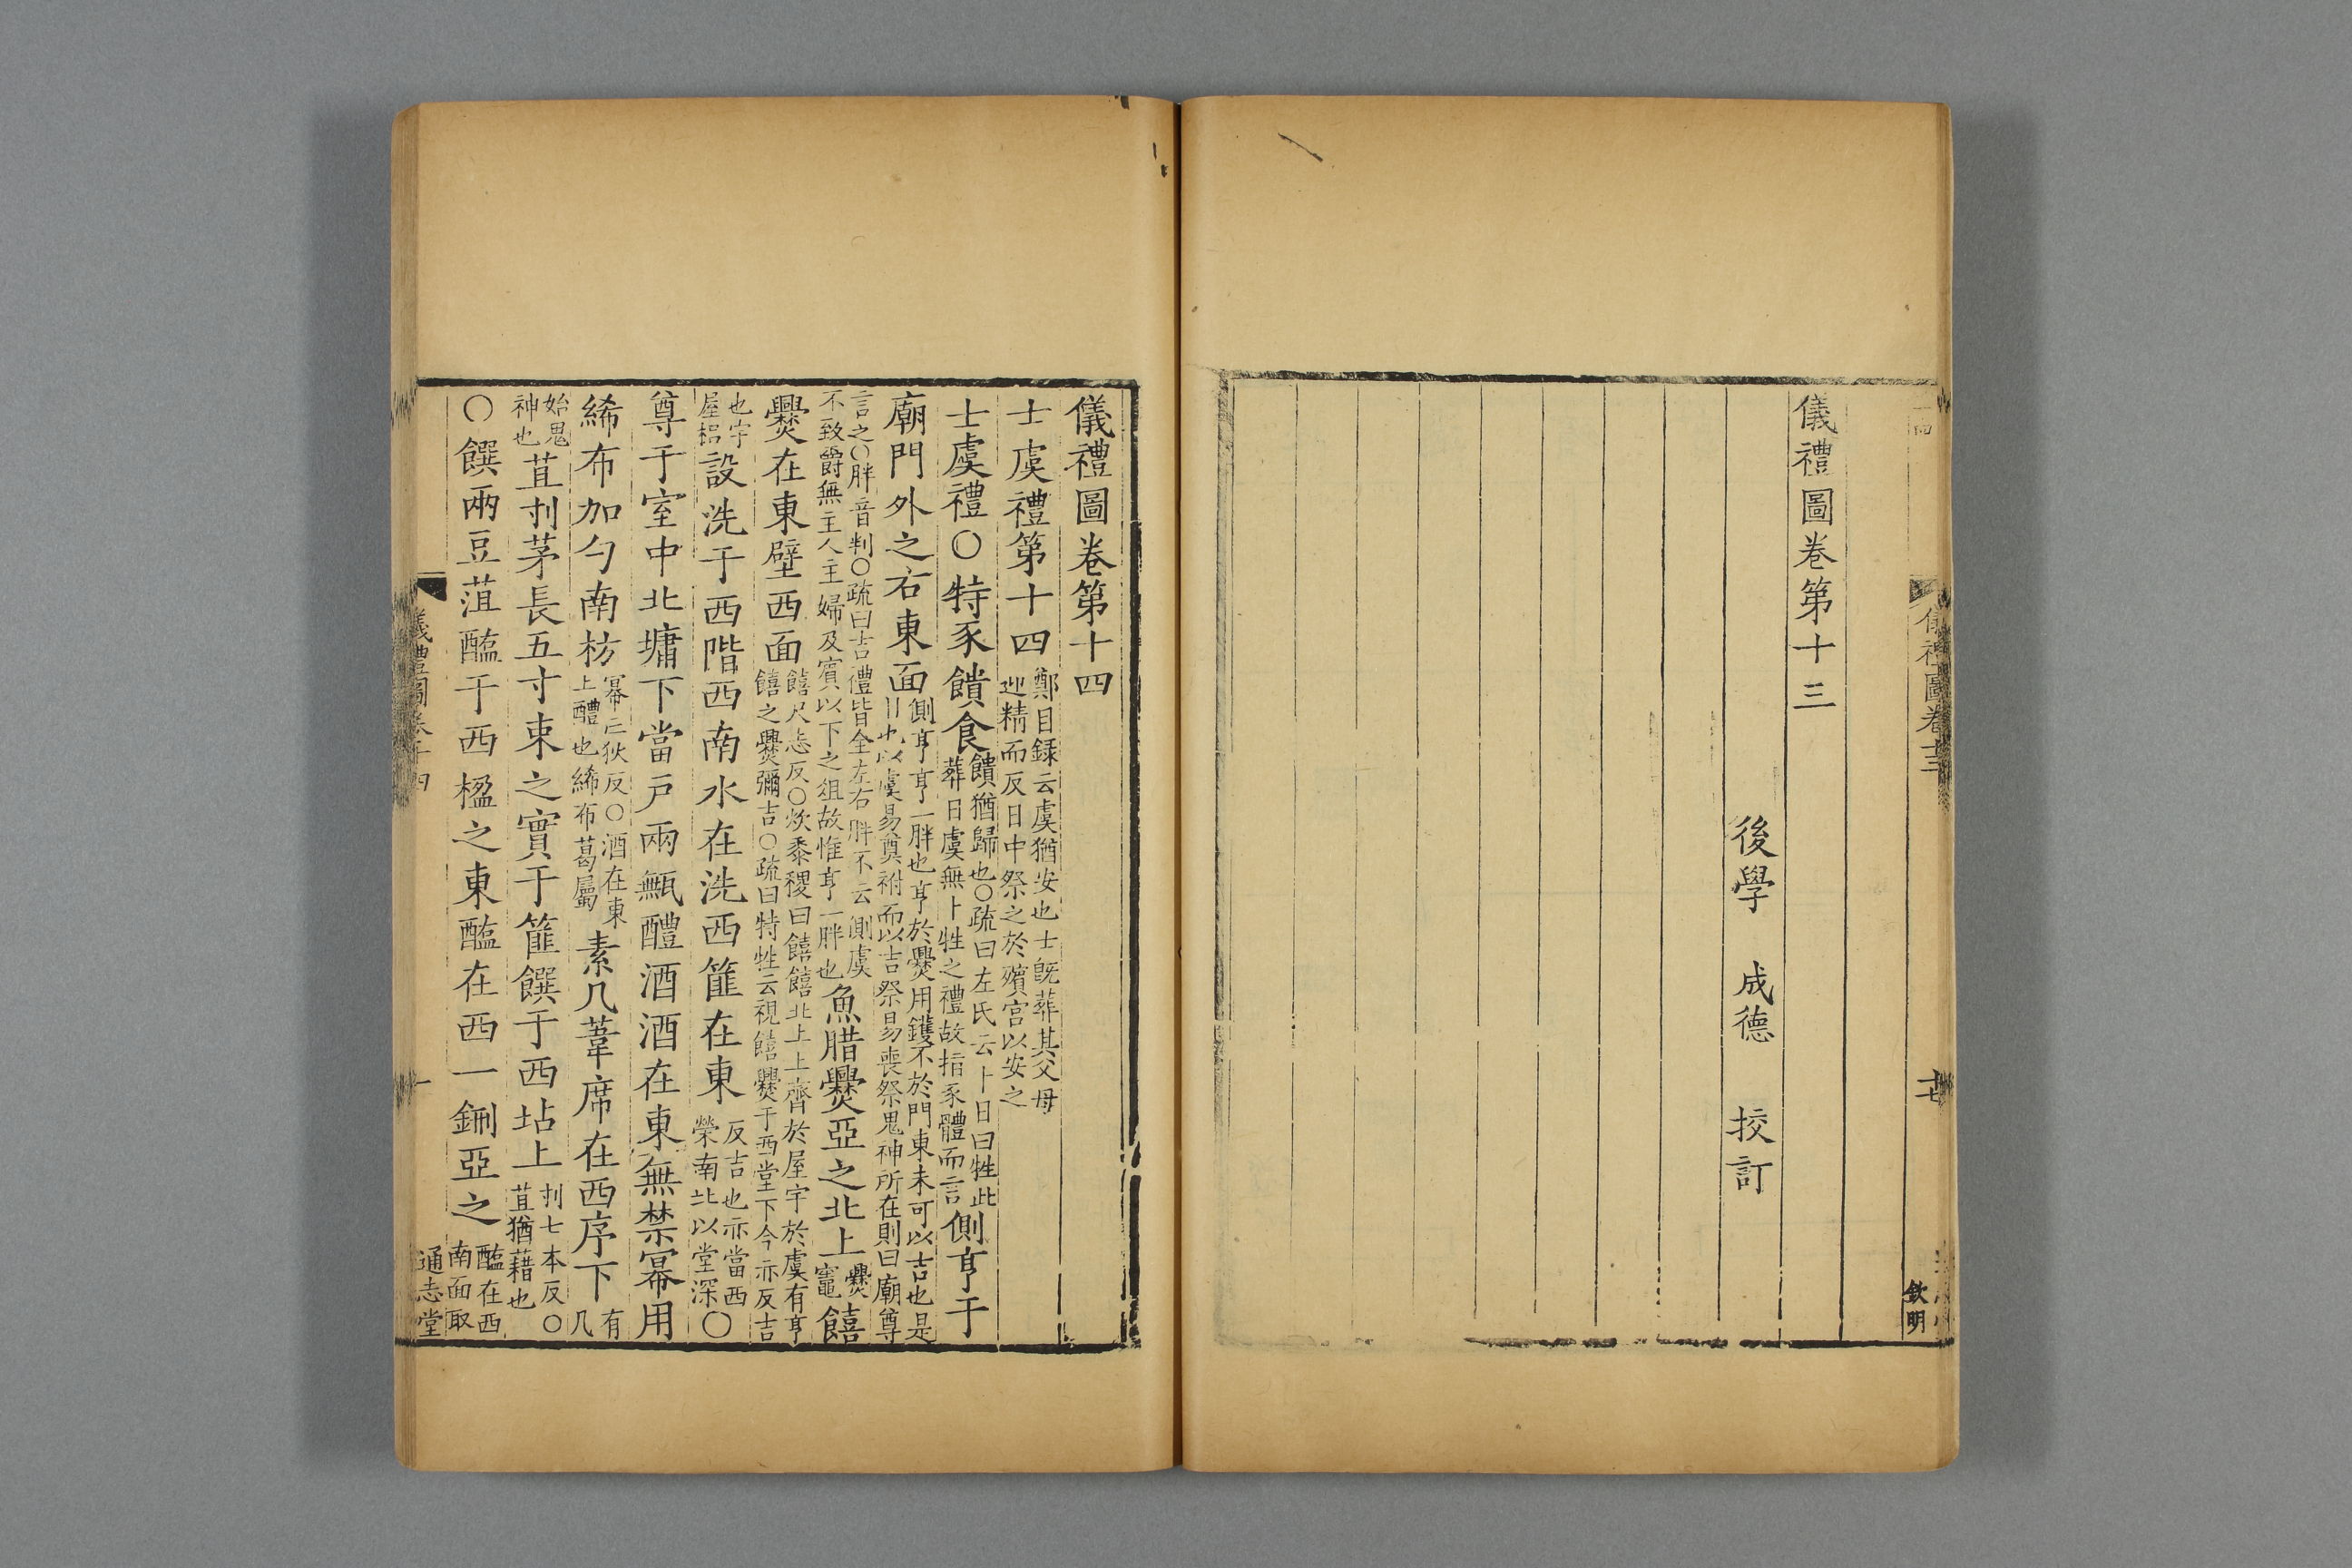 儀禮圖卷十三
十七
欽明
儀禮圖卷第十三
後學 成德 挍訂
儀禮圖卷第十四
士虞禮第十四鄭目録云虞猶安也士既葬其父母
迎精而反日中祭之於殯宫以安之
士虞禮〇特豕饋食饋猶歸也〇疏曰左氏云卜日曰牲此
葬日虞無卜牲之禮故指豕體而言側亨于
廟門外之右東面側亨亨一胖也亨於爨用鑊不於門東未可以吉也是
日也以虞易奠祔而以吉祭易喪祭鬼神所在則曰廟尊
言之〇胖音判〇疏曰吉禮皆全左右胖不云側虞
不致爵無主人主婦及賓以下之俎故惟亨一胖也魚腊爨亞之北上爨
竈饎
爨在東壁西面饎尺志反〇炊黍稷曰饎饎北上上齊於屋宇於虞有亨
饎之爨彌吉〇疏曰特牲云視饎爨于西堂下今亦反吉
也宇
屋梠設洗于西階西南水在洗西篚在東反吉也亦當西
榮南北以堂深〇
尊于室中北墉下當戸兩甒醴酒酒在東無禁冪用
絺布加勺南枋冪亡狄反〇酒在東
上醴也絺布葛屬素几葦席在西序下有
几
始鬼
神也苴刌茅長五寸束之實于篚饌于西坫上刌七本反〇
苴猶藉也
〇饌兩豆菹醢于西楹之東醢在西一鉶亞之醢在西
南面取
儀禮圖卷十四
一
通志堂